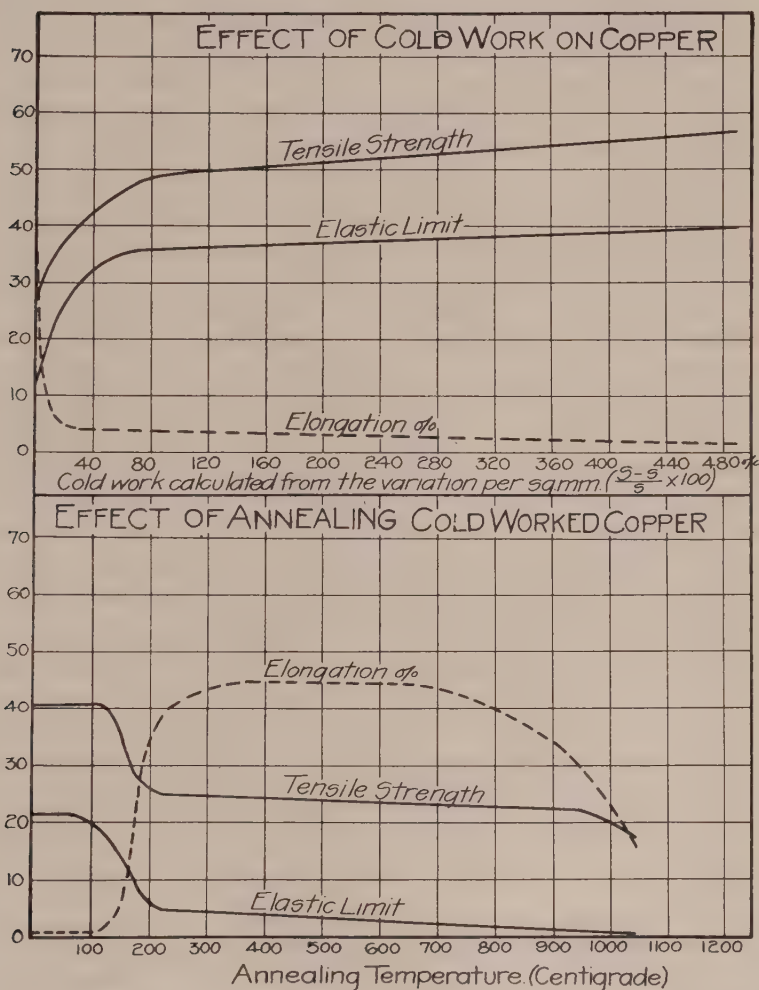 EFFECT OF COLD WORK ON COPPER
70
60
50
40
30
20
10
0
Tensile Strength
Elastic Limit
Elongation %
40 80 120 160 200 240 280 320 360 400 440 480 %
Cold work calculated from the variation per sq.mm. (S-s/s ×100)
EFFECT OF ANNEALING COLD WORKED COPPER
70
60
50
40
30
20
10
0
Elongation %
Tensile Strength
Elastic Limit
100 200 300 400 500 600 700 800 900 1000 1100 1200
Annealing Temperature. (Centigrade)